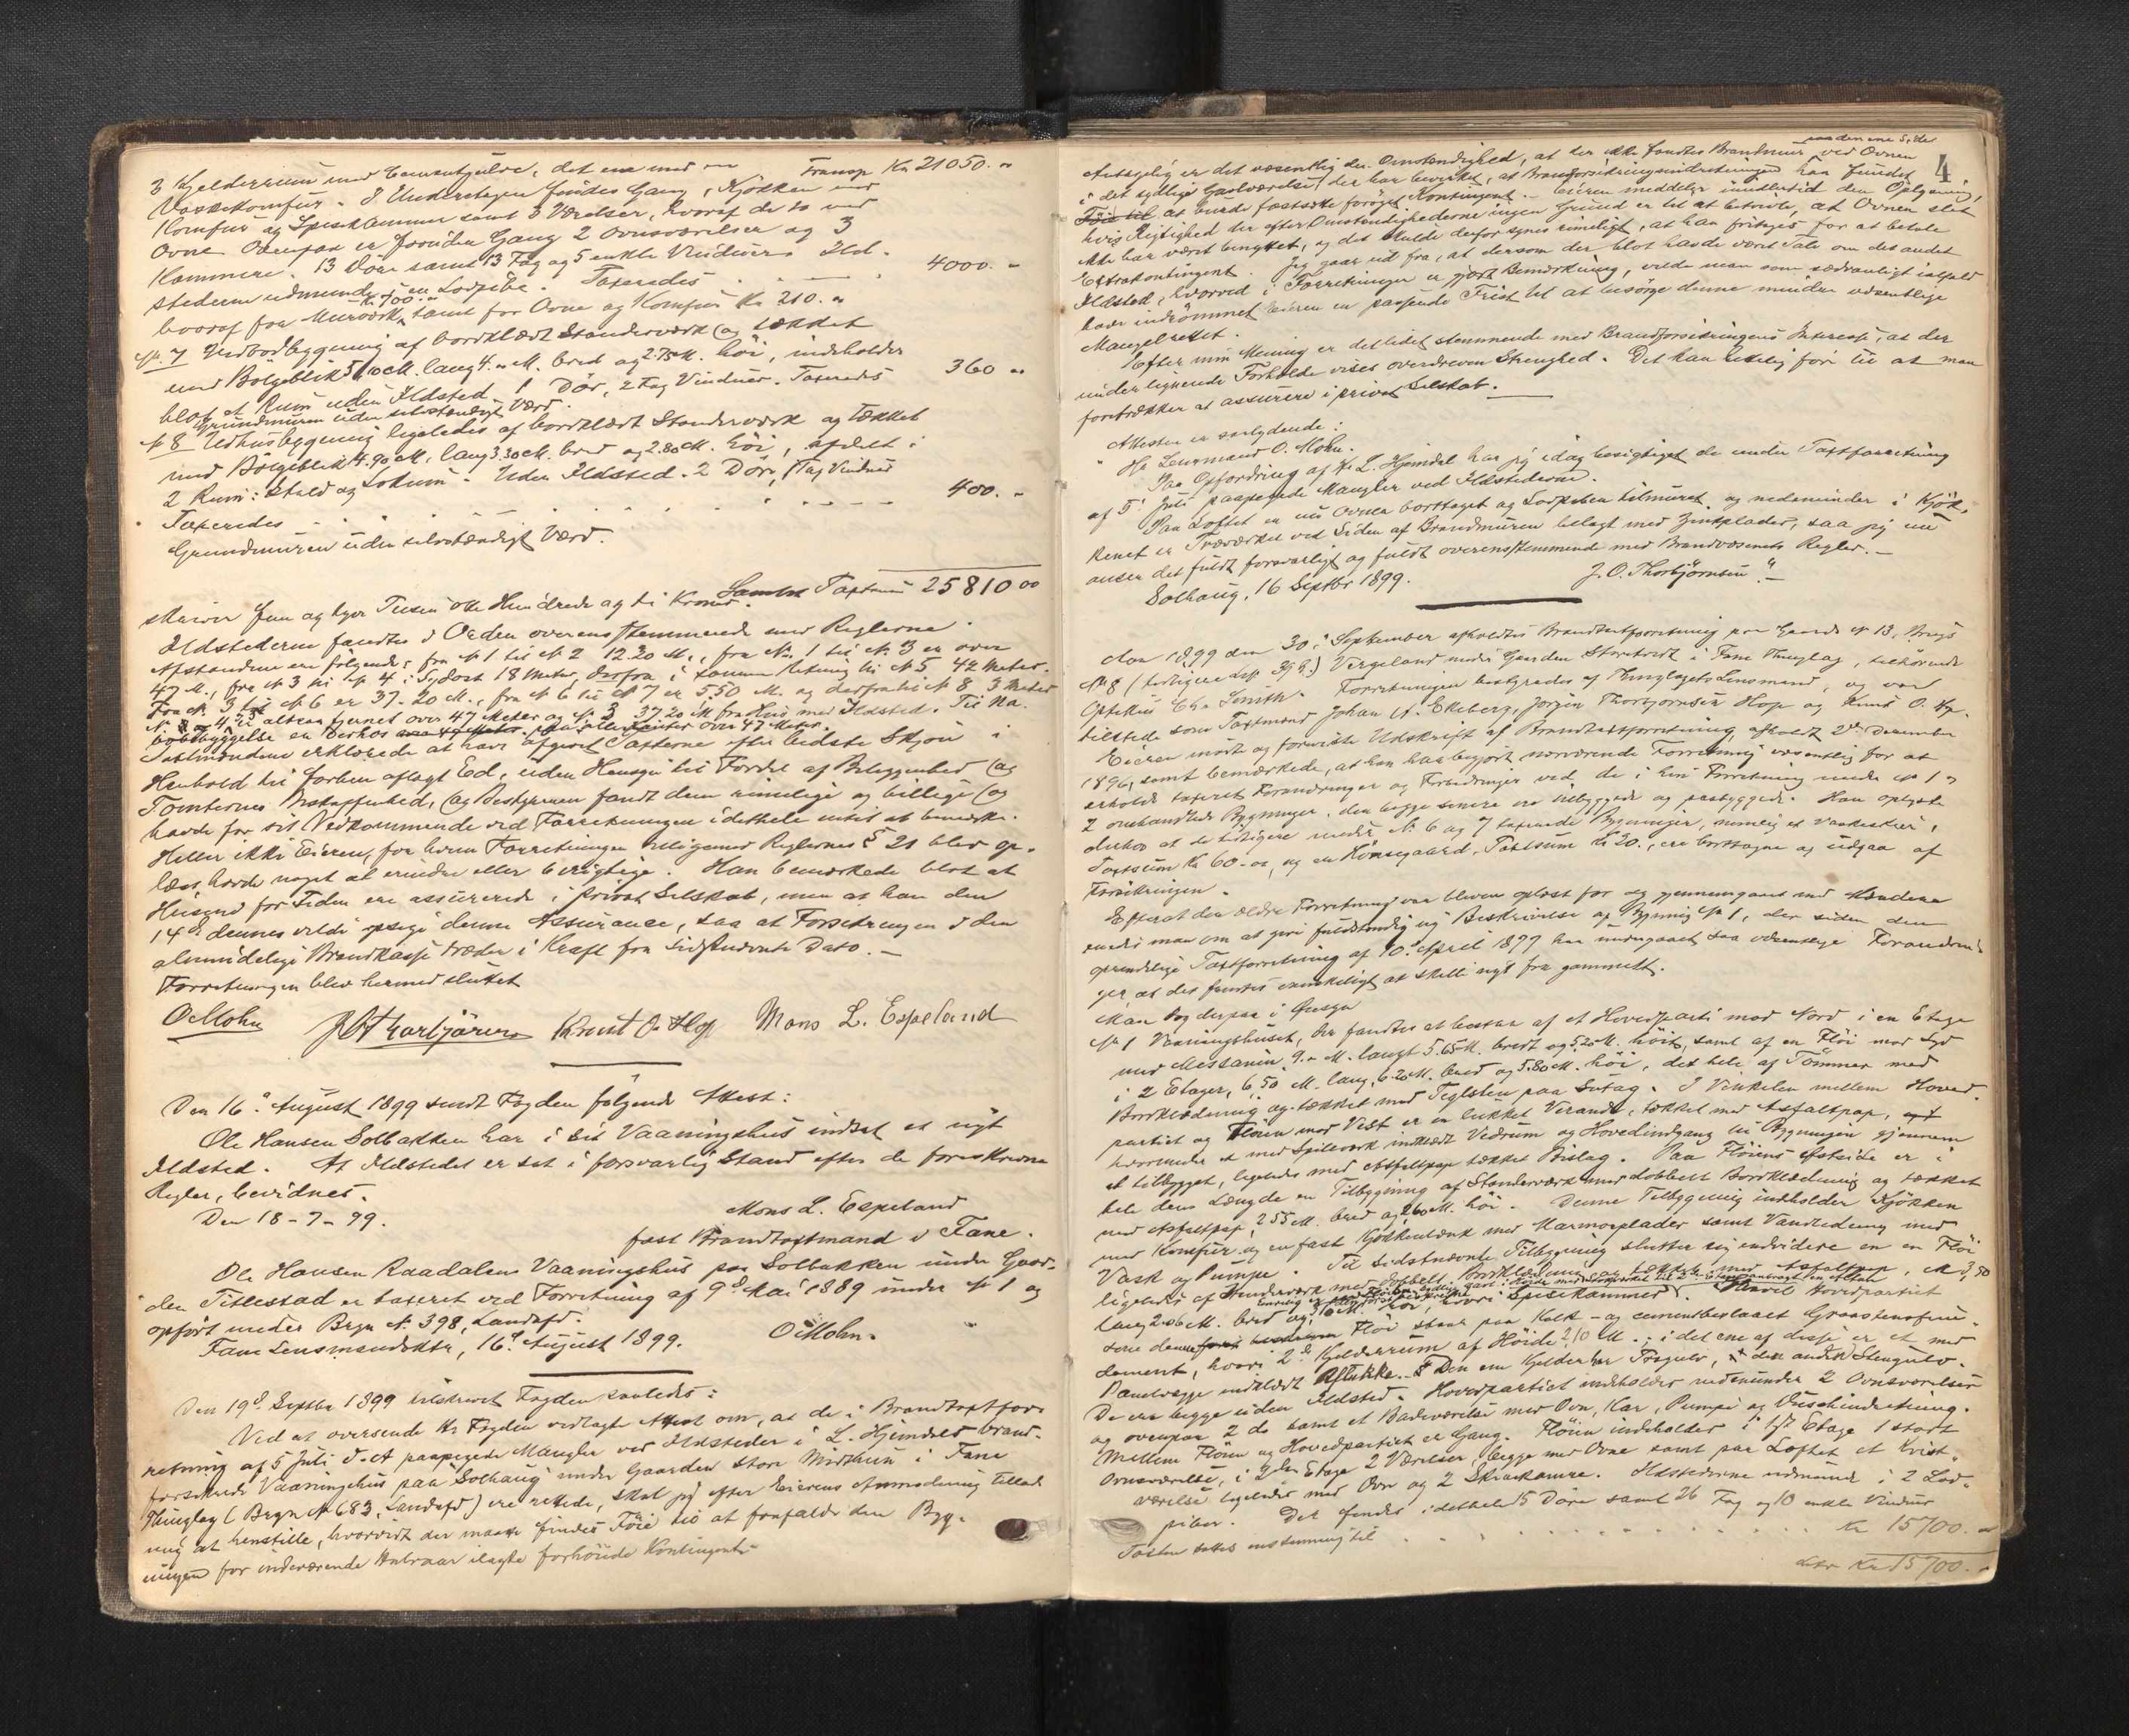 Transp Kr 21050. "
3 Kjelderrum med Cementgulve, det ene med
Vaskekomfur. I Underetagen findes Gang, Kjökken med
Komfur og Spisekammer samt 3 Værelser, hvoraf de to med
Ovne. Ovenpaa er foruden Gang 2 Ovnsværelser og 3
Kammere. 13 Döre samt 13 Fag og 5 enkle Vinduer. Ild-
stederne udmunde i en Lodpibe. Taxeredes 4000. "
hvoraf for Murværk Kr. 700. " samt for Ovne og Komfur Kr 210. "
No. 7 Vedbodbygning af bordklædt Standerværk og tækket
med Bölgeblik 5.10 M. lang 4. " M. bred og 2.75 M. höi, indeholder
blot et Rum uden Ildsted. 1 Dör, 2 Fag Vinduer. Taxeredes 360 "
Grundmuren uden selvstændigt Værd.
No 8 Udhusbygning ligeledes af bordklædt Standerværk og tækket
med Bölgeblik 4.90 M. lang 3.30 M. bred og 2.80 M. höi, afdelt i
2 Rum: Stald og Lokum. Uden Ildsted. 2 Döre, 1 Fag Vinduer
Taxeredes 400. "
Grundmuren uden selvstændigt Værd.
Samlet Taxtsum 25810 00
skriver fem og tyve Tusen otte Hundrede og ti Kroner.
Ildstederne fandtes i Orden overensstemmende med Reglerne.
Afstandene ere fölgende: fra No 1 til No 2 12.20 M., fra No. 1 til No. 3 er over
47 M., fra No 3 til No 4 i Sydost 18 Meter, derfra i samme Retning til No 5 42 Meter.
Fra No. 3 til No 6 er 37.20 M., fra No 6 til No 7 er 5.50 M. og derfra til No 8 3 Meter
No 4 er altsaa fjernet over 47 Meter og No 3 37.20 M fra Hus med Ildsted. Til Na-
bobebyggelse er derhos over 47 Meter.
Taxtmændene erklærede at have afgivet Taxterne efter bedste Skjön i
Henhold til forhen aflagt Ed, uden Hensyn til Fordel af Beliggenhed og
Tomternes Beskaffenhed, og Bestyreren fandt dem rimelige og billige og
havde for sit Vedkommende ved Forretningen idethele intet at bemærke.
Heller ikke Eieren, for hvem Forretningen ifölge Reglernes § 21 blev op-
læst, havde noget at erindre eller berigtige. Han bemærkede blot at
Husene for Tiden ere assurerede i privat Selskab, men at han den
14de dennes vilde opsige denne Assurance, saa at Forsikringen i den
almindelige Brandkasse træder i Kraft fra sidstnævnte Dato. —
Forretningen blev hermed sluttet
O Mohn J O Thorbjörnsen Knut O. Hop Mons L. Espeland
Den 16de August 1899 sendt Fogden fölgende Attest:
Ole Hansen Solbakken har i sit Vaaningshus indsat et nyt
Ildsted. At Ildstedet er sat i forsvarlig Stand efter de foreskrevne
Regler, bevidnes.
Den 18-7-99.
Mons L. Espeland
fast Brandtaxtmand i Fane.
Ole Hansen Raadalens Vaaningshus paa Solbakken under Gaar-
den Titlestad er taxeret ved Forretning af 9de Mai 1889 under No 1 og
opfört under Bygn No. 398, Landsfd.
Fane Lensmandsktr, 16de August 1899. O Mohn.
Den 19de Septbr 1899 tilskrevet Fogden saaledes:
Ved at oversende Hr Fogden vedlagte Attest om, at de i Brandtaxtfor-
retning af 5 Juli d. A paapegede Mangler ved Ildsteder i L. Hjemdals brand-
forsikrede Vaaningshus paa "Solhaug" under Gaarden Store Midthun i Fane
Thinglag (Bygn No 683, Landsfd) ere rettede, skal jeg efter Eierens Anmodning tillade
mig at henstille, hvorvidt der maatte findes Föie til at frafalde den Byg-
ningen for indeværende Halvaar ilagte forhöiede Kontingent.
4
Antagelig er det væsentlig den Omstændighed, at der ikke fandtes Brandmur ved Ovnen paa den ene Side
i det sydlige Gavlværelse, der har bevirket, at Brandforsikringsindretningen har fundet
Föie til at burde fastsætte foröget Kontingent. Eieren meddeler imidlertid den Oplysning,
hvis Rigtighed der efter Omstændighederne ingen Grund er til at betvivle, at Ovnen slet
ikke har været benyttet, og det skulde derfor synes rimeligt, at han fritages for at betale
Extrakontingent. Jeg gaar ud fra, at dersom der blot havde været Tale om det andet
Ildsted, hvorved i Forretningen er gjort Bemærkning, vilde man som sædvanligt ialfald
have indrömmet Eieren en passende Frist til at besörge denne mindre væsentlige
Mangel rettet.
Efter min Mening er det lidet stemmende med Brandforsikringens Interesse, at der
under lignende Forholde vises overdreven Strenghed. Det kan lettelig före til at man
foretrækker at assurere i privat Selskab. —
Attesten er saalydende:
" Hr Lensmand O. Mohn.
Paa Opfordring af Hr L. Hjemdal har jeg idag besigtiget de under Taxtforretning
af 5te Juli paapegede Mangler ved Ildstederne.
Paa Loftet er nu Ovnen borttaget og Lodpiben tilmuret og nedenunder i Kjök-
kenet er Træværket ved Siden af Brandmuren belagt med Zinkplader, saa jeg nu
anser det fuldt forsvarligt og fuldt overensstemmende med Brandvæsenets Regler. —
Solhaug, 16 Septbr 1899. J. O. Thorbjörnsen "
Aar 1899 den 30te September afholdtes Brandtaxtforretning paa Gaards No 13, Brugs
No 8 (tidligere 39 b.) Vergeland under Gaarden Storetveit i Fane Thinglag, tilhörende
Optikus Chr Smith. Forretningen bestyredes af Thinglagets Lensmand, og var
tilstede som Taxtmænd Johan A. Ekeberg, Jörgen Thorbjörnsen Hop og Knut O. Hop.
Eieren mödte og foreviste Udskrift af Brandtaxtforretning, afholdt 2den December
1896, samt bemærkede, at han har begjært nærværende Forretning væsentlig for at
erholde taxeret Forandringer og Forbedringer ved de i hin Forretning under No 1 "
2 omhandlede Bygninger, der begge senere ere tilbyggede og paabyggede. Han oplyste
derhos at de tidligere under No 6 og 7 taxerede Bygninger, nemlig et Vaskeskur,
Taxtsum Kr 60.00, og en Hönsegaard, Taxtsum Kr 20., ere borttagne og udgaa af
Forsikringen.
Efterat den ældre Forretning var bleven oplæst for og gjennemgaaet med Mændene
enedes man om at give fuldstændig ny Beskrivelse af Bygning No 1, der siden den
oprindelige Taxtforretning af 10de April 1877 har undergaaet saa væsentlige Forandrin-
ger, at det fandtes vanskeligt at skille nyt fra gammelt.
Man tog derpaa i Öiesyn
No 1 Vaaningshuset, der fandtes at bestaa af et Hovedparti mod Nord i en Etage
med Messanin, 9. " M. langt 5.65 M. bredt og 5.20 M. höit, samt af en Flöi mod Syd
i 2 Etager, 6.50 M. lang, 6.20 M. bred og 5.80 M. höi, det hele af Tömmer med
Bordklædning og tækket med Teglsten paa Sutag. I Vinkelen mellem Hoved-
partiet og Flöien mod Vest er en lukket Veranda, tækket med Asfaltpap,
hvorunder et med Spilværk indklædt Vedrum og Hovedindgang til Bygningen gjennem
et tilbygget, ligeledes med Asfaltpap tækket Bislag. Paa Flöiens Östside er i
hele dens Længde en Tilbygning af Standerværk med dobbelt Bordklædning og tækket
med Asfaltpap, 2.55 M. bred og 2.60 M. höi. Denne Tilbygning indeholder Kjökken
med Komfur og en fast Kjökkenbænk med Marmorplader samt Vandledning med
Vask og Pumpe. Til sidstnævnte Tilbygning slutter sig endvidere en Flöi
ligeledes af Standerværk med dobbelt Bordklædning og tækket med Asfaltpap, M 3,50
lang 2.06 M. bred og höi, hvori Spisekammer. Saavel Hovedpartiet
som denne Flöi staar paa Kalk- og cementbeslaaet Graastensfun-
dament, hvori 2de Kjelderrum af Höide 2.10 M.; i det ene af disse er et med
Panelvægge indklædt Aflukke. Den ene Kjelder har Trægulv, den anden Stengulv.
De ere begge uden Ildsted. Hovedpartiet indeholder nedenunder 2 Ovnsværelser
og ovenpaa 2 do samt et Badeværelse med Ovn, Kar, Pumpe og Duschindretning.
Mellem Flöien og Hovedpartiet er Gang. Flöien indeholder i 1ste Etage 1 stort
Ovnsværelse, i 2den Etage 2 Værelser, begge med Ovne samt paa Loftet et Kvist-
værelse ligeledes med Ovn og 2 Skraakamre. Ildstederne udmunde i 2 Lod-
piber. Der findes i det hele 15 Döre samt 26 Fag og 10 enkle Vinduer
Taxten sattes enstemmig til Kr 15700. "
Kr 15700. "